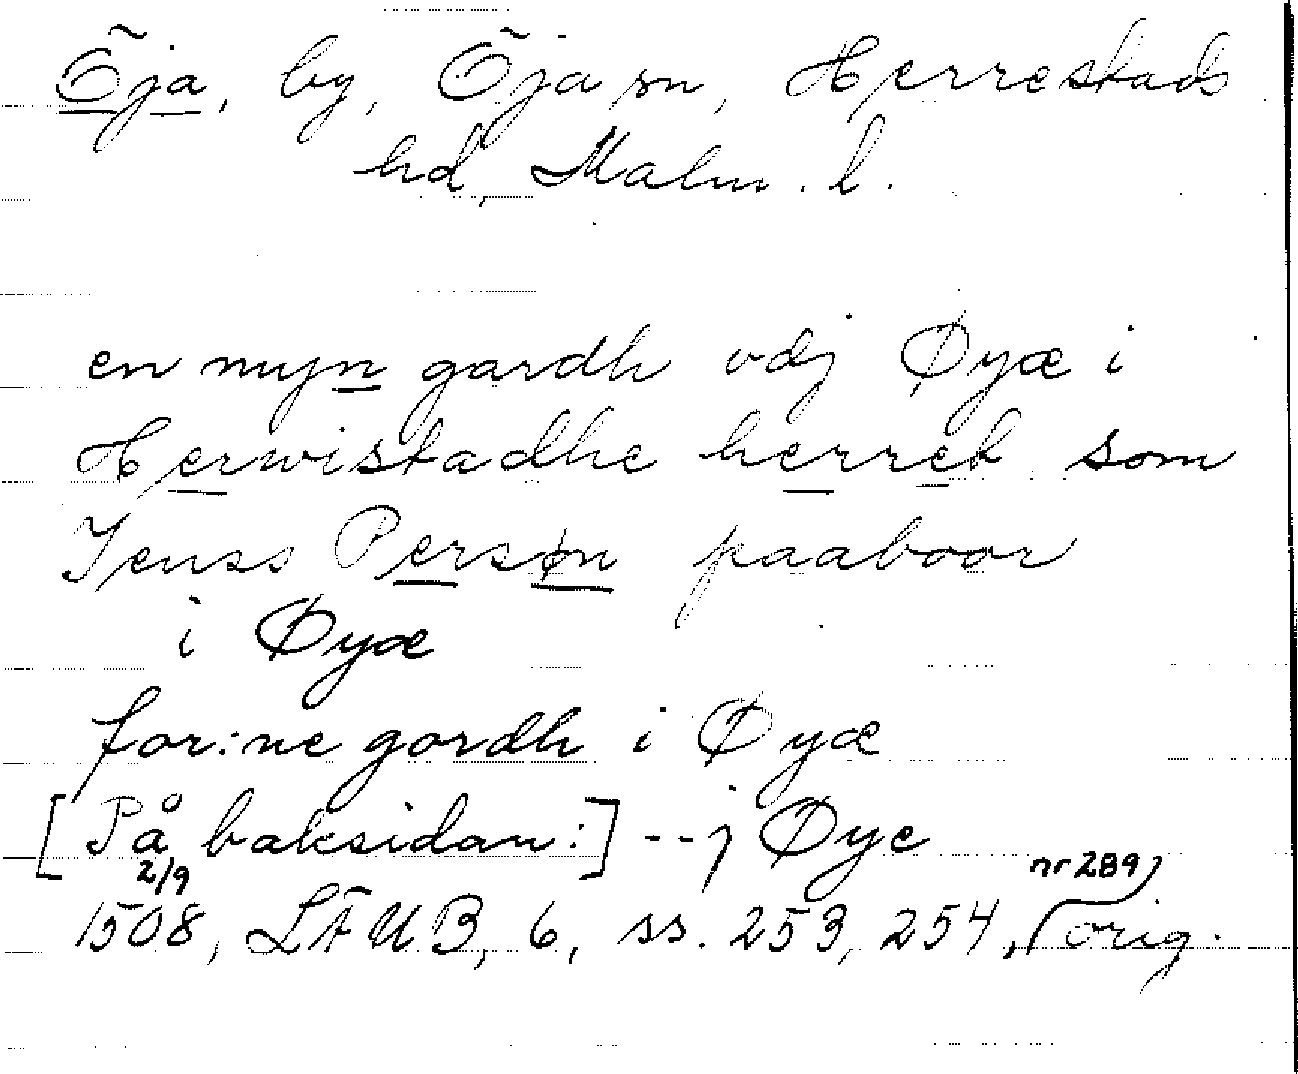 Öja, by, Öja sn, Herrestads
hd, Malm. l.
en myn gardh vdj Øyæ i
Herwistadhe herret som
Jenss Persøn paaboor
i Øyæ
for:ne gordh i Øyæ
[På baksidan:] -- j Øye
2/9 1508, LÄUB, 6, ss. 253, 254, nr 289, orig.